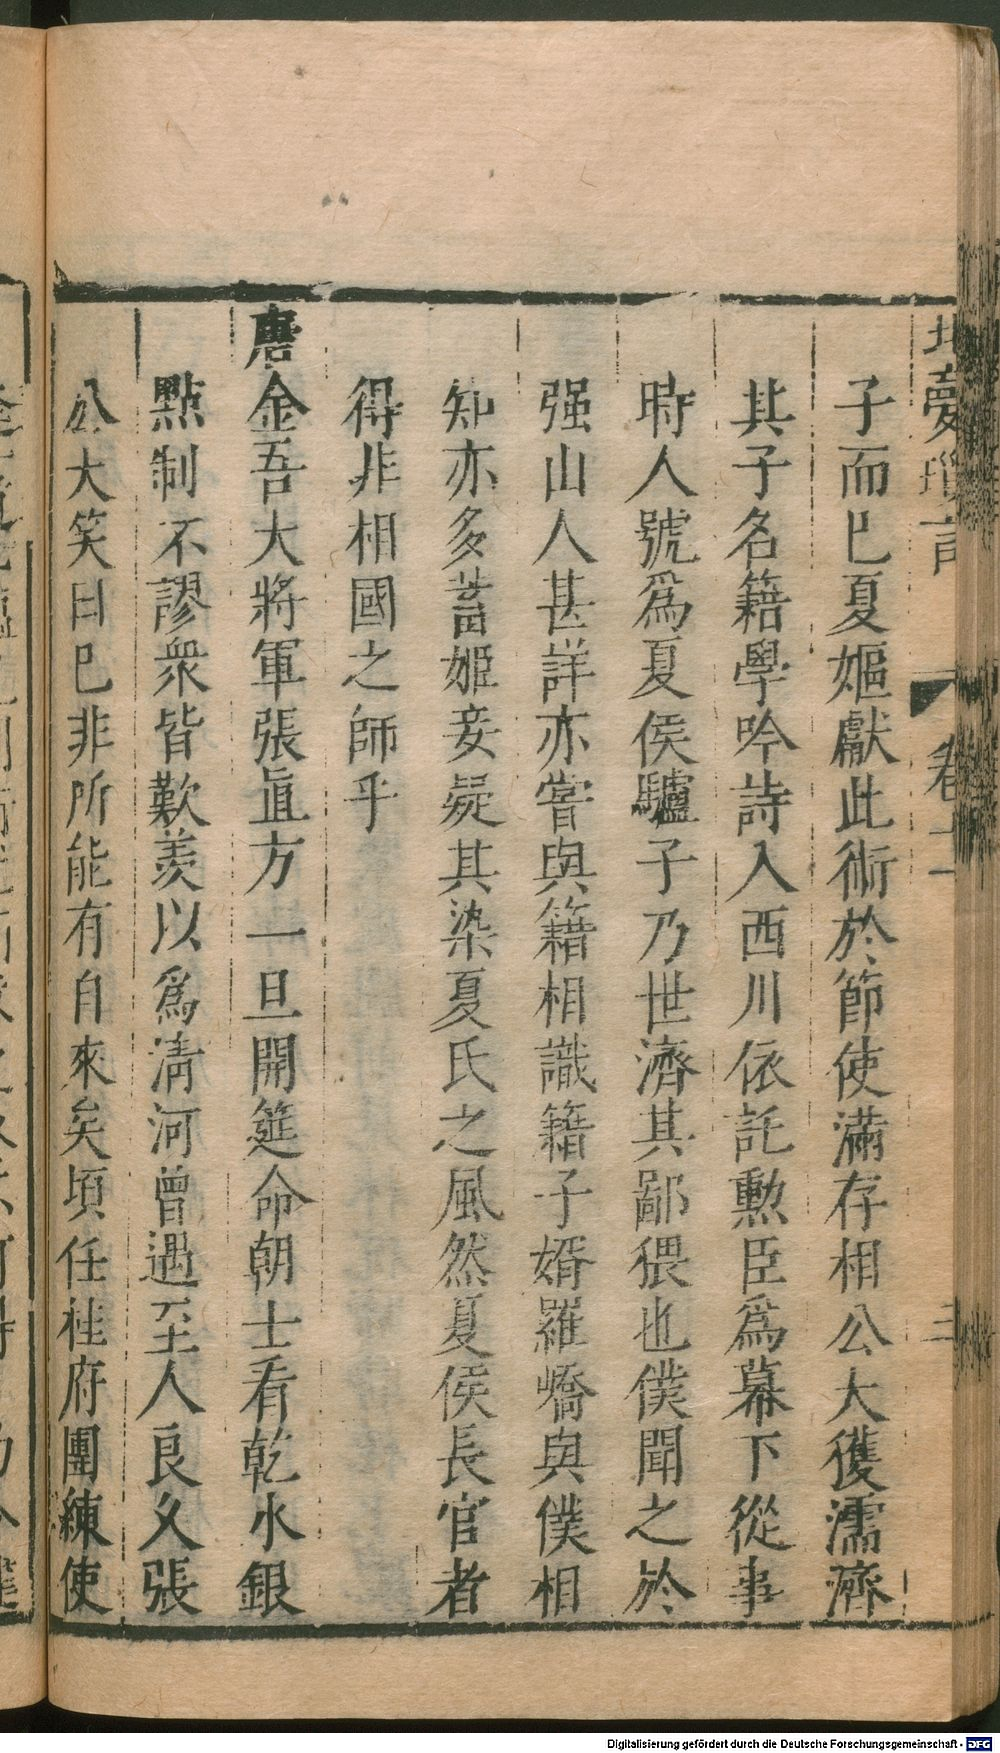 北夢瑣言 卷十一 三
子而巳夏嫗獻此術於節使滿存相公大獲濡濟
其子名籍學吟詩入西川依託勲臣爲幕下從事
時人號爲夏侯驢子乃世濟其鄙猥也僕聞之於
强山人甚詳亦嘗與籍相識籍子婿羅嶠與僕相
知亦多蓄姬妾疑其染夏氏之風然夏侯長官者
得非相國之師乎
唐金吾大將軍張直方一旦開筵命朝士看乾水銀
點制不謬衆皆歎羡以爲淸河曾遇至人良久張
公大笑曰巳非所能有自來矣頃任桂府團練使
Digitalisierung gefördert durch die Deutsche Forschungsgemeinschaft - DFG